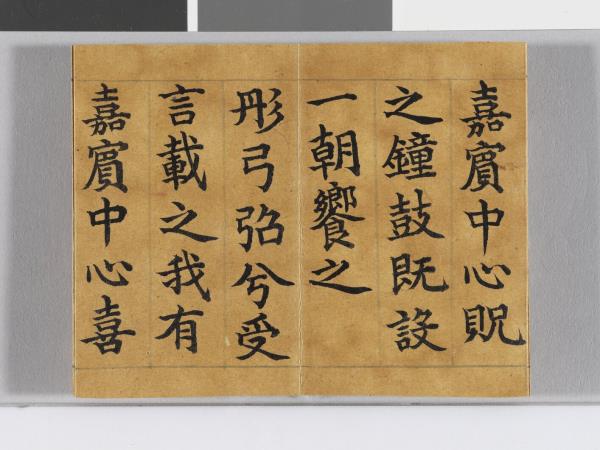 嘉賓中心貺
之鐘鼓既設
一朝饗之
彤弓弨兮受
言載之我有
嘉賓中心喜